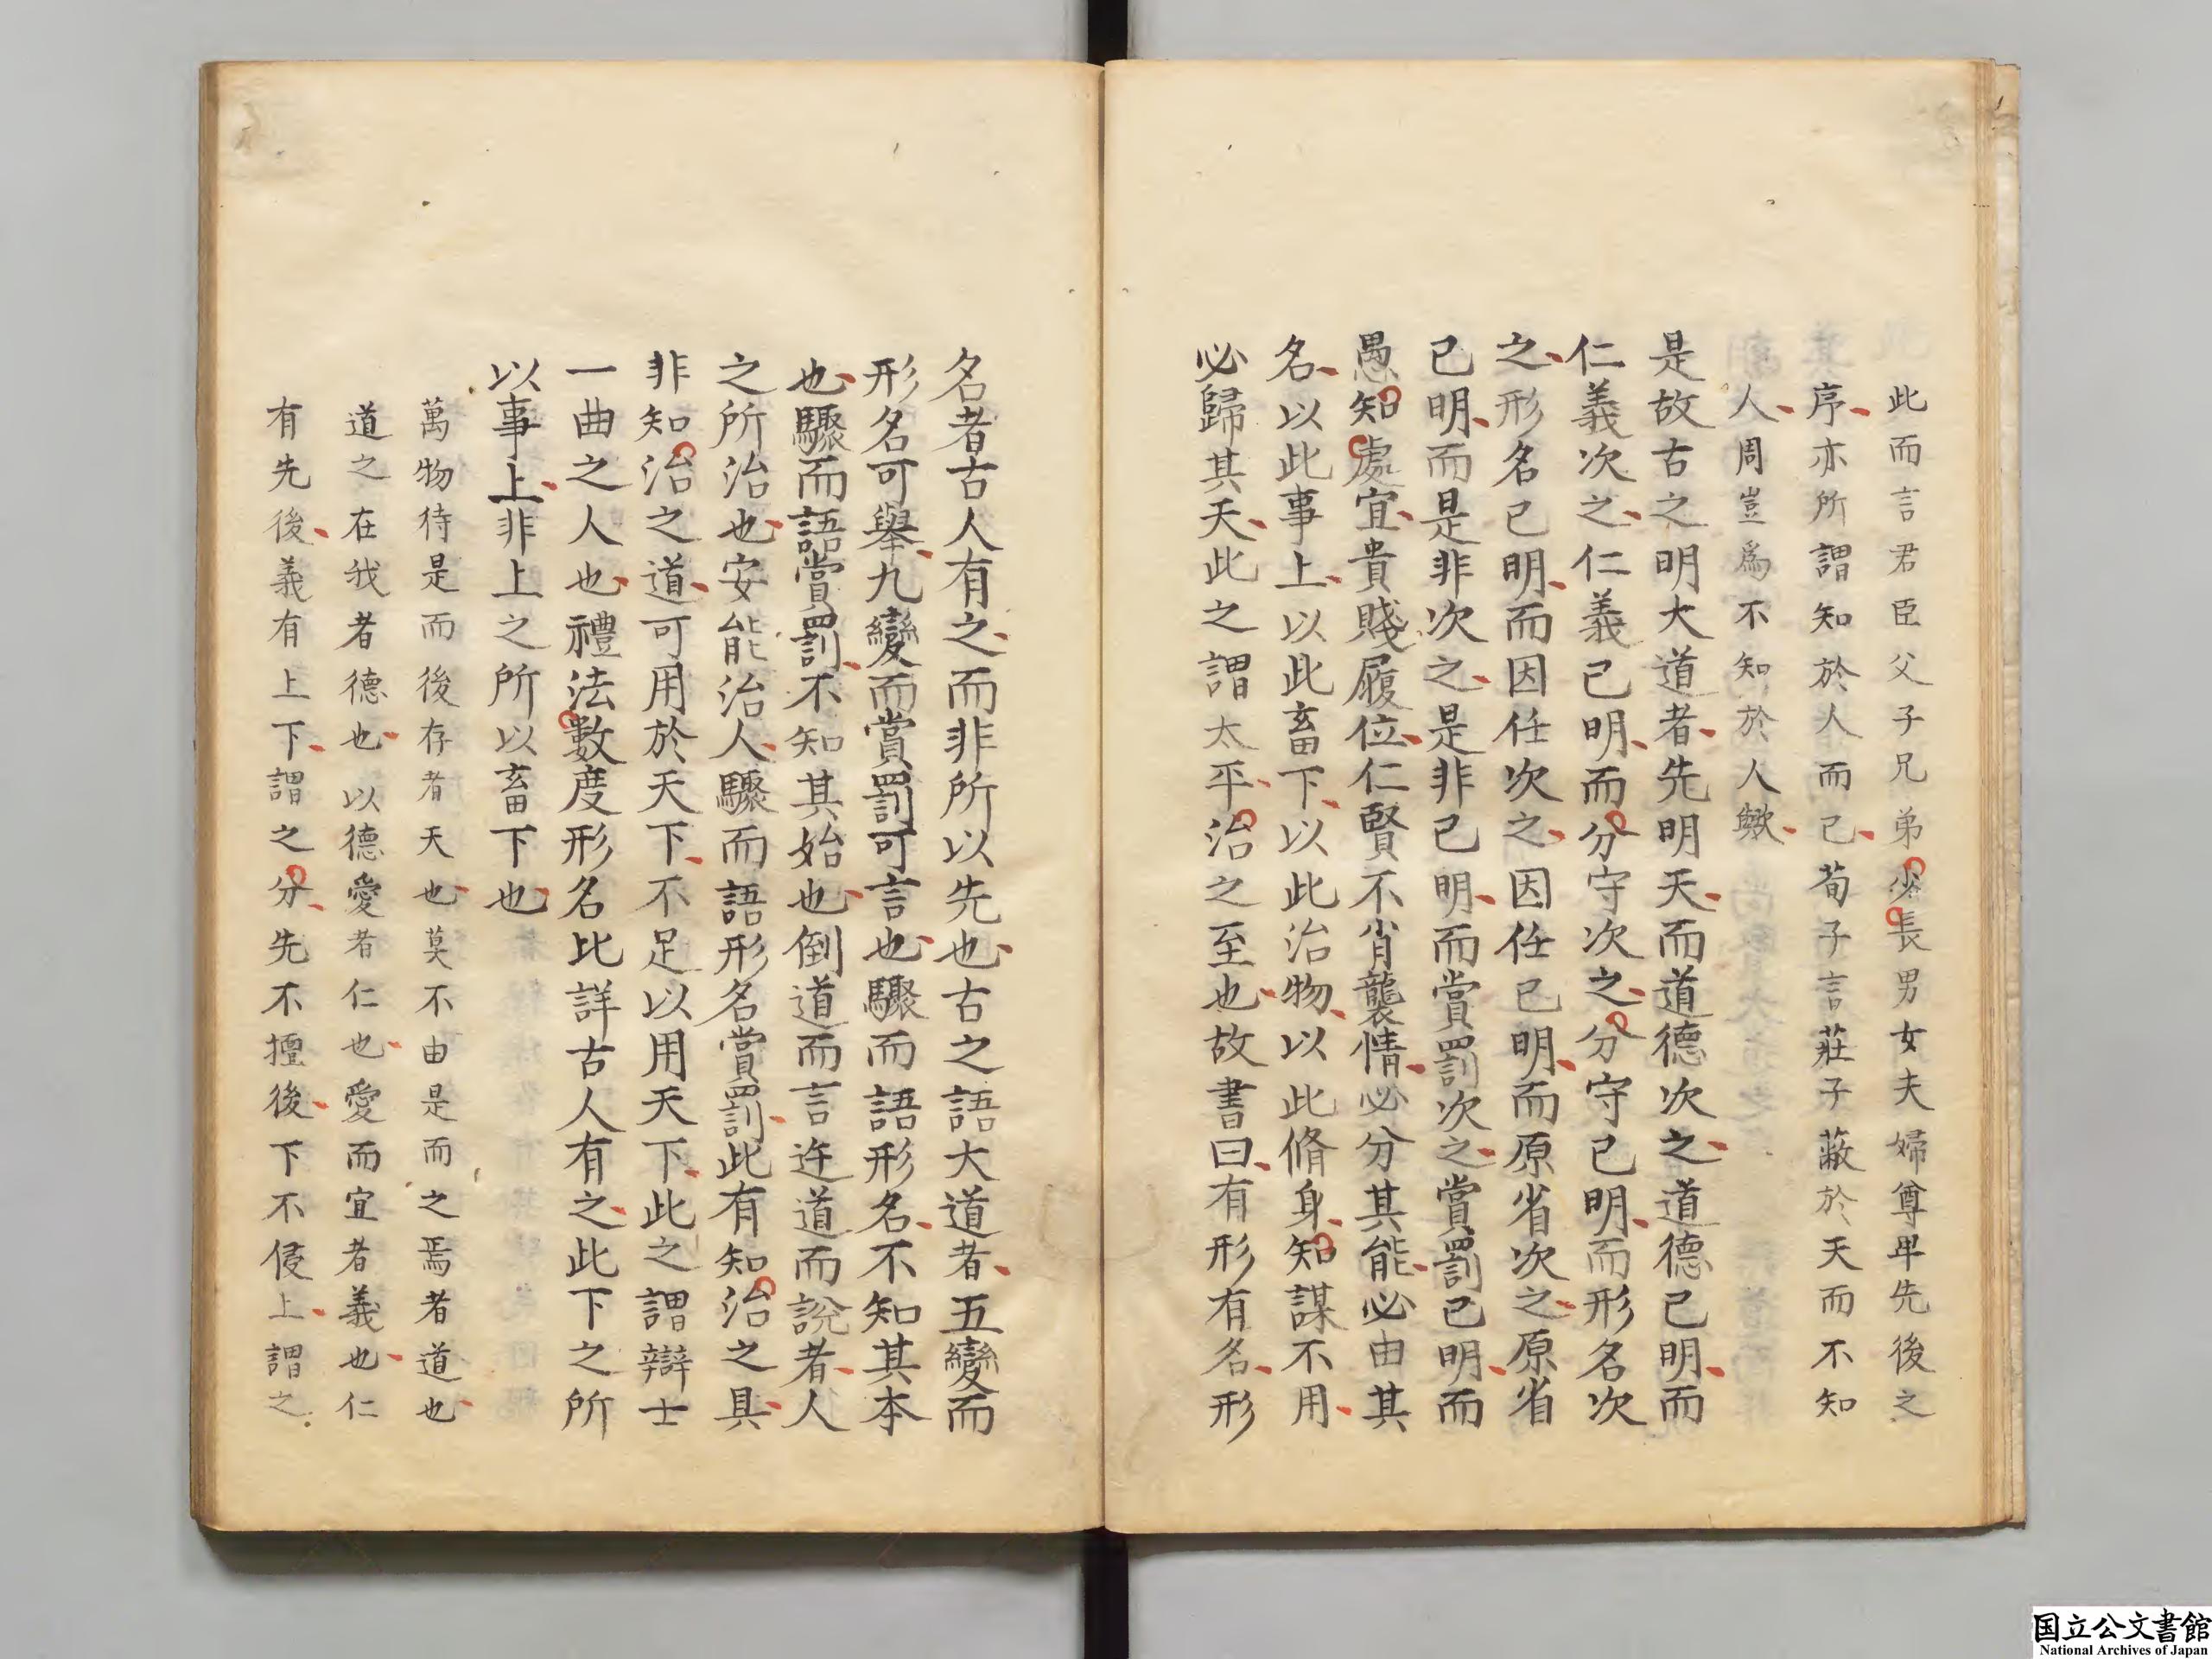 此而言君臣父子兄弟少長男女夫婦尊卑先後之
序亦所謂知於人而已荀子言莊子蔽於天而不知
人周豈爲不知於人歟
是故古之明大道者先明天而道德次之道德已明而
仁義次之仁義已明而分守次之分守已明而形名次
之形名已明而因任次之因任已明而原省次之原省
已明而是非次之是非已明而賞罰次之賞罰已明而
愚知處宜貴賤履位仁賢不肖襲情必分其能必由其
名以此事上以此畜下以此治物以此脩身知謀不用
必歸其天此之謂太平治之至也故書曰有形有名形
名者古人有之而非所以先也古之語大道者五變而
形名可舉九變而賞罰可言也驟而語形名不知其本
也驟而語賞罰不知其始也倒道而言迕道而說者人
之所治也安能治人驟而語形名賞罰此有知治之具
非知治之道可用於天下不足以用天下此之謂辯士
一曲之人也禮法數度形名比詳古人有之此下之所
以事上非上之所以畜下也
萬物待是而後存者天也莫不由是而之焉者道也
道之在我者德也以德愛者仁也愛而宜者義也仁
有先後義有上下謂之分先不擅後下不侵上謂之
国立公文書館
National Archives of Japan